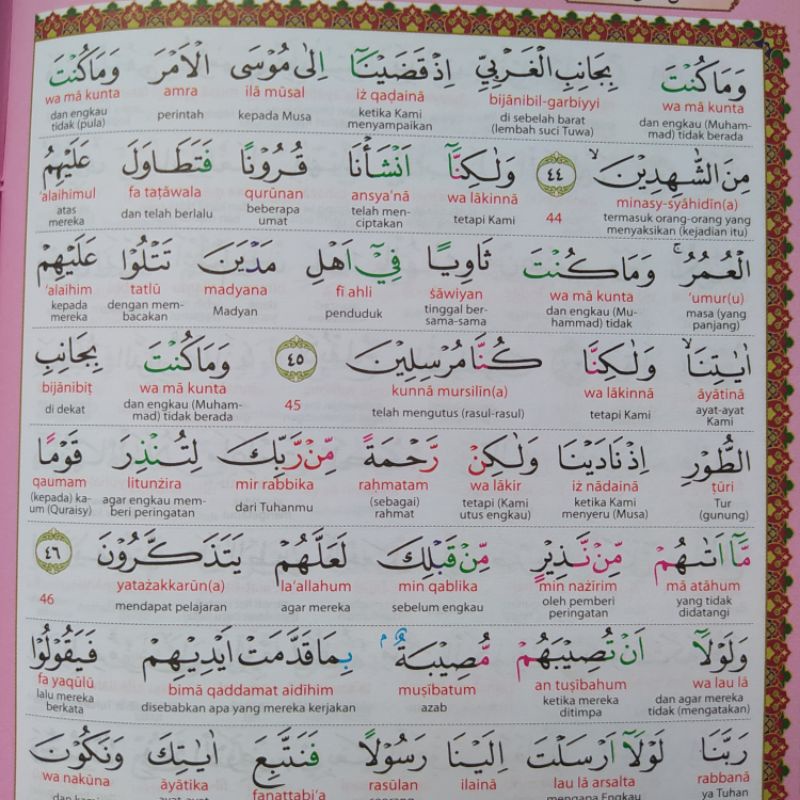 وَمَا كُنْتَ بِجَانِبِ الْغَرْبِيِّ اِذْ قَضَيْنَآ اِلٰى مُوْسَى الْاَمْرَ وَمَا كُنْتَ
wa mā kunta bijānibil-garbiyyi iż qaḍainā ilā mūsal amra wa mā kunta
dan engkau (Muham-mad) tidak berada di sebelah barat (lembah suci Tuwa) ketika Kami menyampaikan kepada Musa perintah dan engkau tidak (pula)
مِنَ الشّٰهِدِيْنَ ۙ ٤٤ وَلٰكِنَّآ اَنْشَأْنَا قُرُوْنًا فَتَطَاوَلَ عَلَيْهِمُ
minasy-syāhidīn(a) 44 wa lākinnā ansya'nā qurūnan fa taṭāwala 'alaihimul
termasuk orang-orang yang menyaksikan (kejadian itu) tetapi Kami telah men-ciptakan beberapa umat dan telah berlalu atas mereka
الْعُمُرُ ۚ وَمَا كُنْتَ ثَاوِيًا فِيْٓ اَهْلِ مَدْيَنَ تَتْلُوْا عَلَيْهِمْ
'umur(u) wa mā kunta ṡāwiyan fī ahli madyana tatlū 'alaihim
masa (yang panjang) dan engkau (Mu-hammad) tidak tinggal ber-sama-sama penduduk Madyan dengan mem-bacakan kepada mereka
اٰيٰتِنَا ۙ وَلٰكِنَّا كُنَّا مُرْسِلِيْنَ ٤٥ وَمَا كُنْتَ بِجَانِبِ
āyātinā wa lākinnā kunnā mursilīn(a) 45 wa mā kunta bijānibiṭ
ayat-ayat Kami tetapi Kami telah mengutus (rasul-rasul) dan engkau (Muham-mad) tidak berada di dekat
الطُّوْرِ اِذْ نَادَيْنَا وَلٰكِنْ رَّحْمَةً مِّنْ رَّبِّكَ لِتُنْذِرَ قَوْمًا
ṭūri iż nādainā wa lākir raḥmatam mir rabbika litunżira qaumam
Tur (gunung) ketika Kami menyeru (Musa) tetapi (Kami utus engkau) (sebagai) rahmat dari Tuhanmu agar engkau mem-beri peringatan (kepada) ka-um (Quraisy)
مَّآ اَتٰىهُمْ مِّنْ نَّذِيْرٍ مِّنْ قَبْلِكَ لَعَلَّهُمْ يَتَذَكَّرُوْنَ ٤٦
mā atāhum min nażīrim min qablika la'allahum yatażakkarūn(a) 46
yang tidak didatangi oleh pemberi peringatan sebelum engkau agar mereka mendapat pelajaran
وَلَوْلَآ اَنْ تُصِيْبَهُمْ مُّصِيْبَةٌ ۢبِمَا قَدَّمَتْ اَيْدِيْهِمْ فَيَقُوْلُوْا
wa lau lā an tuṣībahum muṣībatum bimā qaddamat aidīhim fa yaqūlū
dan agar mereka tidak (mengatakan) ketika mereka ditimpa azab disebabkan apa yang mereka kerjakan lalu mereka berkata
رَبَّنَا لَوْلَآ اَرْسَلْتَ اِلَيْنَا رَسُوْلًا فَنَتَّبِعَ اٰيٰتِكَ وَنَكُوْنَ
rabbanā lau lā arsalta ilainā rasūlan fanattabi'a āyātika wa nakūna
ya Tuhan